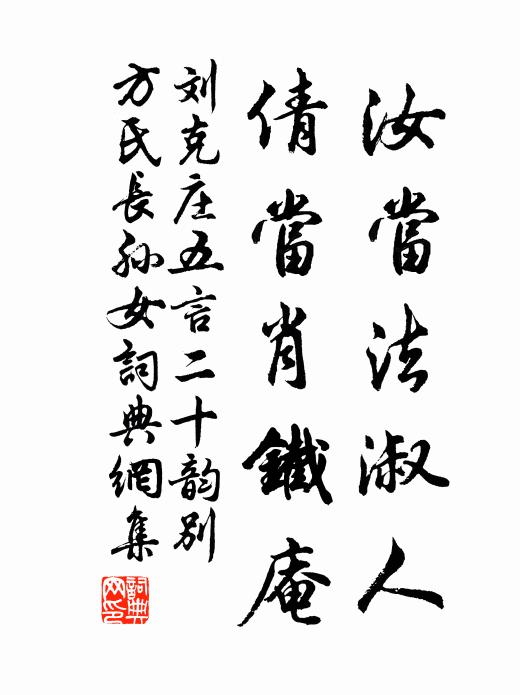 汝當法淑人
倩當肖鐵庵
刘克庄五言二十韵别
方氏長孙女詞典網集
詞典网印